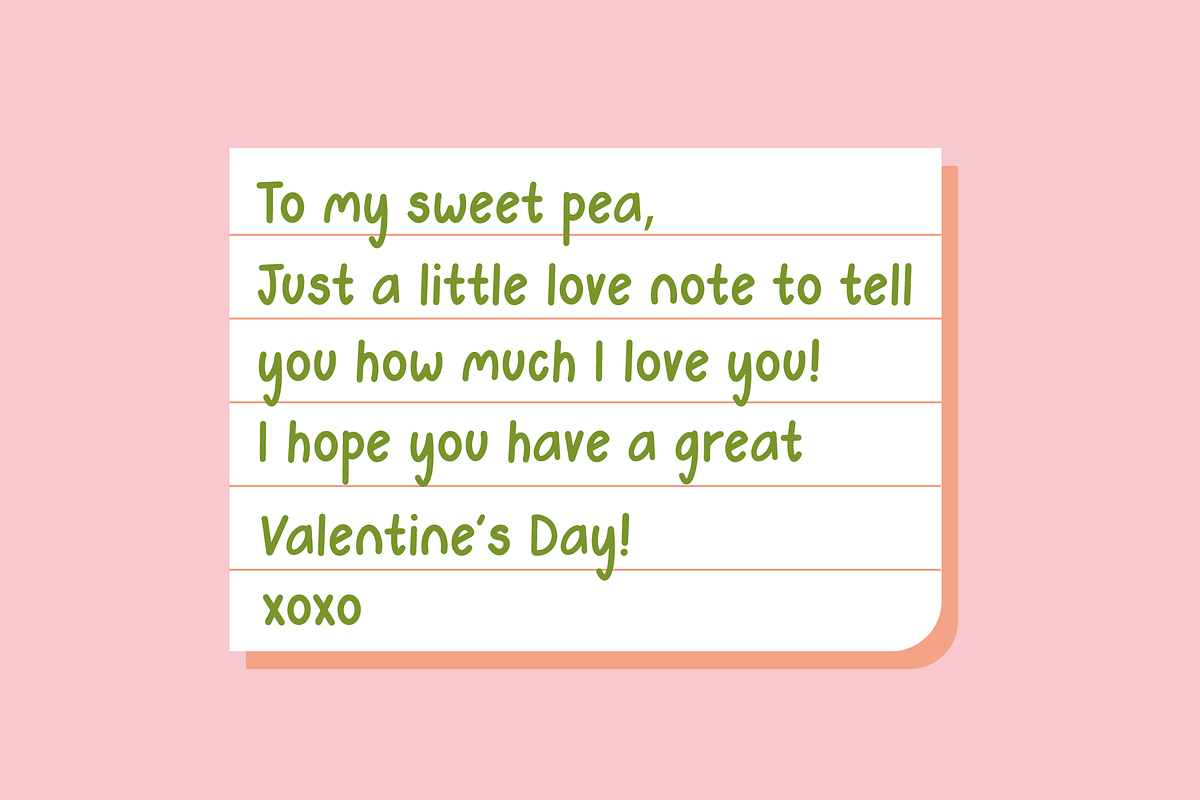 To my sweet pea,
Just a little love note to tell
you how much I love you!
I hope you have a great
Valentine's Day!
xoxo